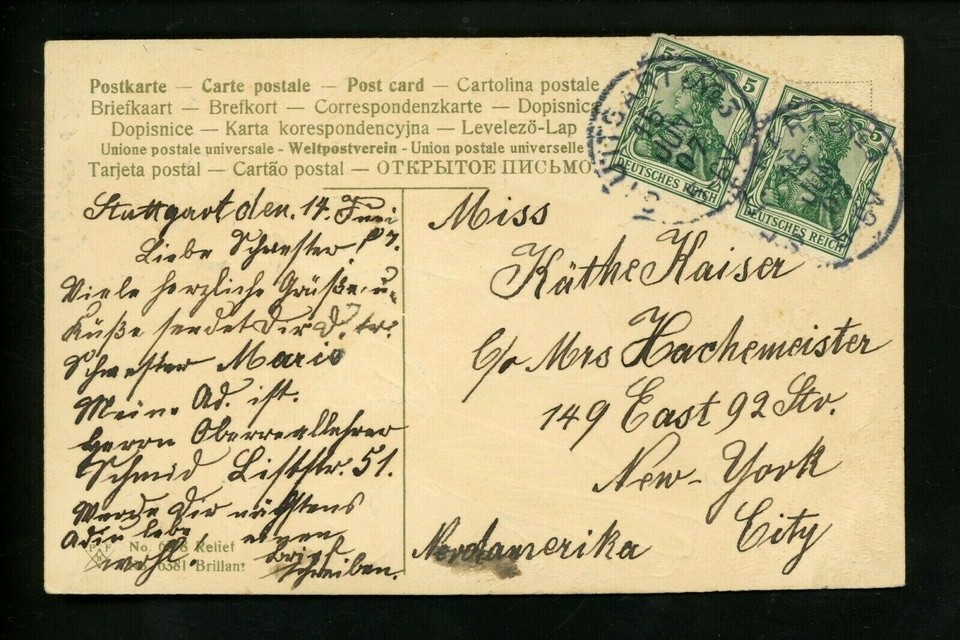 Postkarte — Carte postale — Post card — Cartolina postale
Briefkaart — Brefkort — Correspondenzkarte — Dopisnica
Dopisnice — Karta korespondencyjna — Levelező-Lap
Unione postale universale - Weltpostverein - Union postale universelle
Tarjeta postal — Cartão postal — ОТКРЫТОЕ ПИСЬМО
5 5
DEUTSCHES REICH
5 5
DEUTSCHES REICH
STUTTGART
15
JUN
07
Stuttgart den. 14. Juni
07.
Liebe Schwester!
Viele herzliche Grüße u.
Küße sendet Dir d. tr.
Schwester Marie
Meine Ad. ist.
Herrn Oberreallehrer
Schmid Liststr. 51.
Werde Dir nächstens
einen
Brief
schreiben.
Adieu lebe
wohl!
No. Relief
6381 Brillant
Miss
Käthe Kaiser
c/o Mrs Hachemeister
149 East 92 Str.
New-York
City
Nordamerika